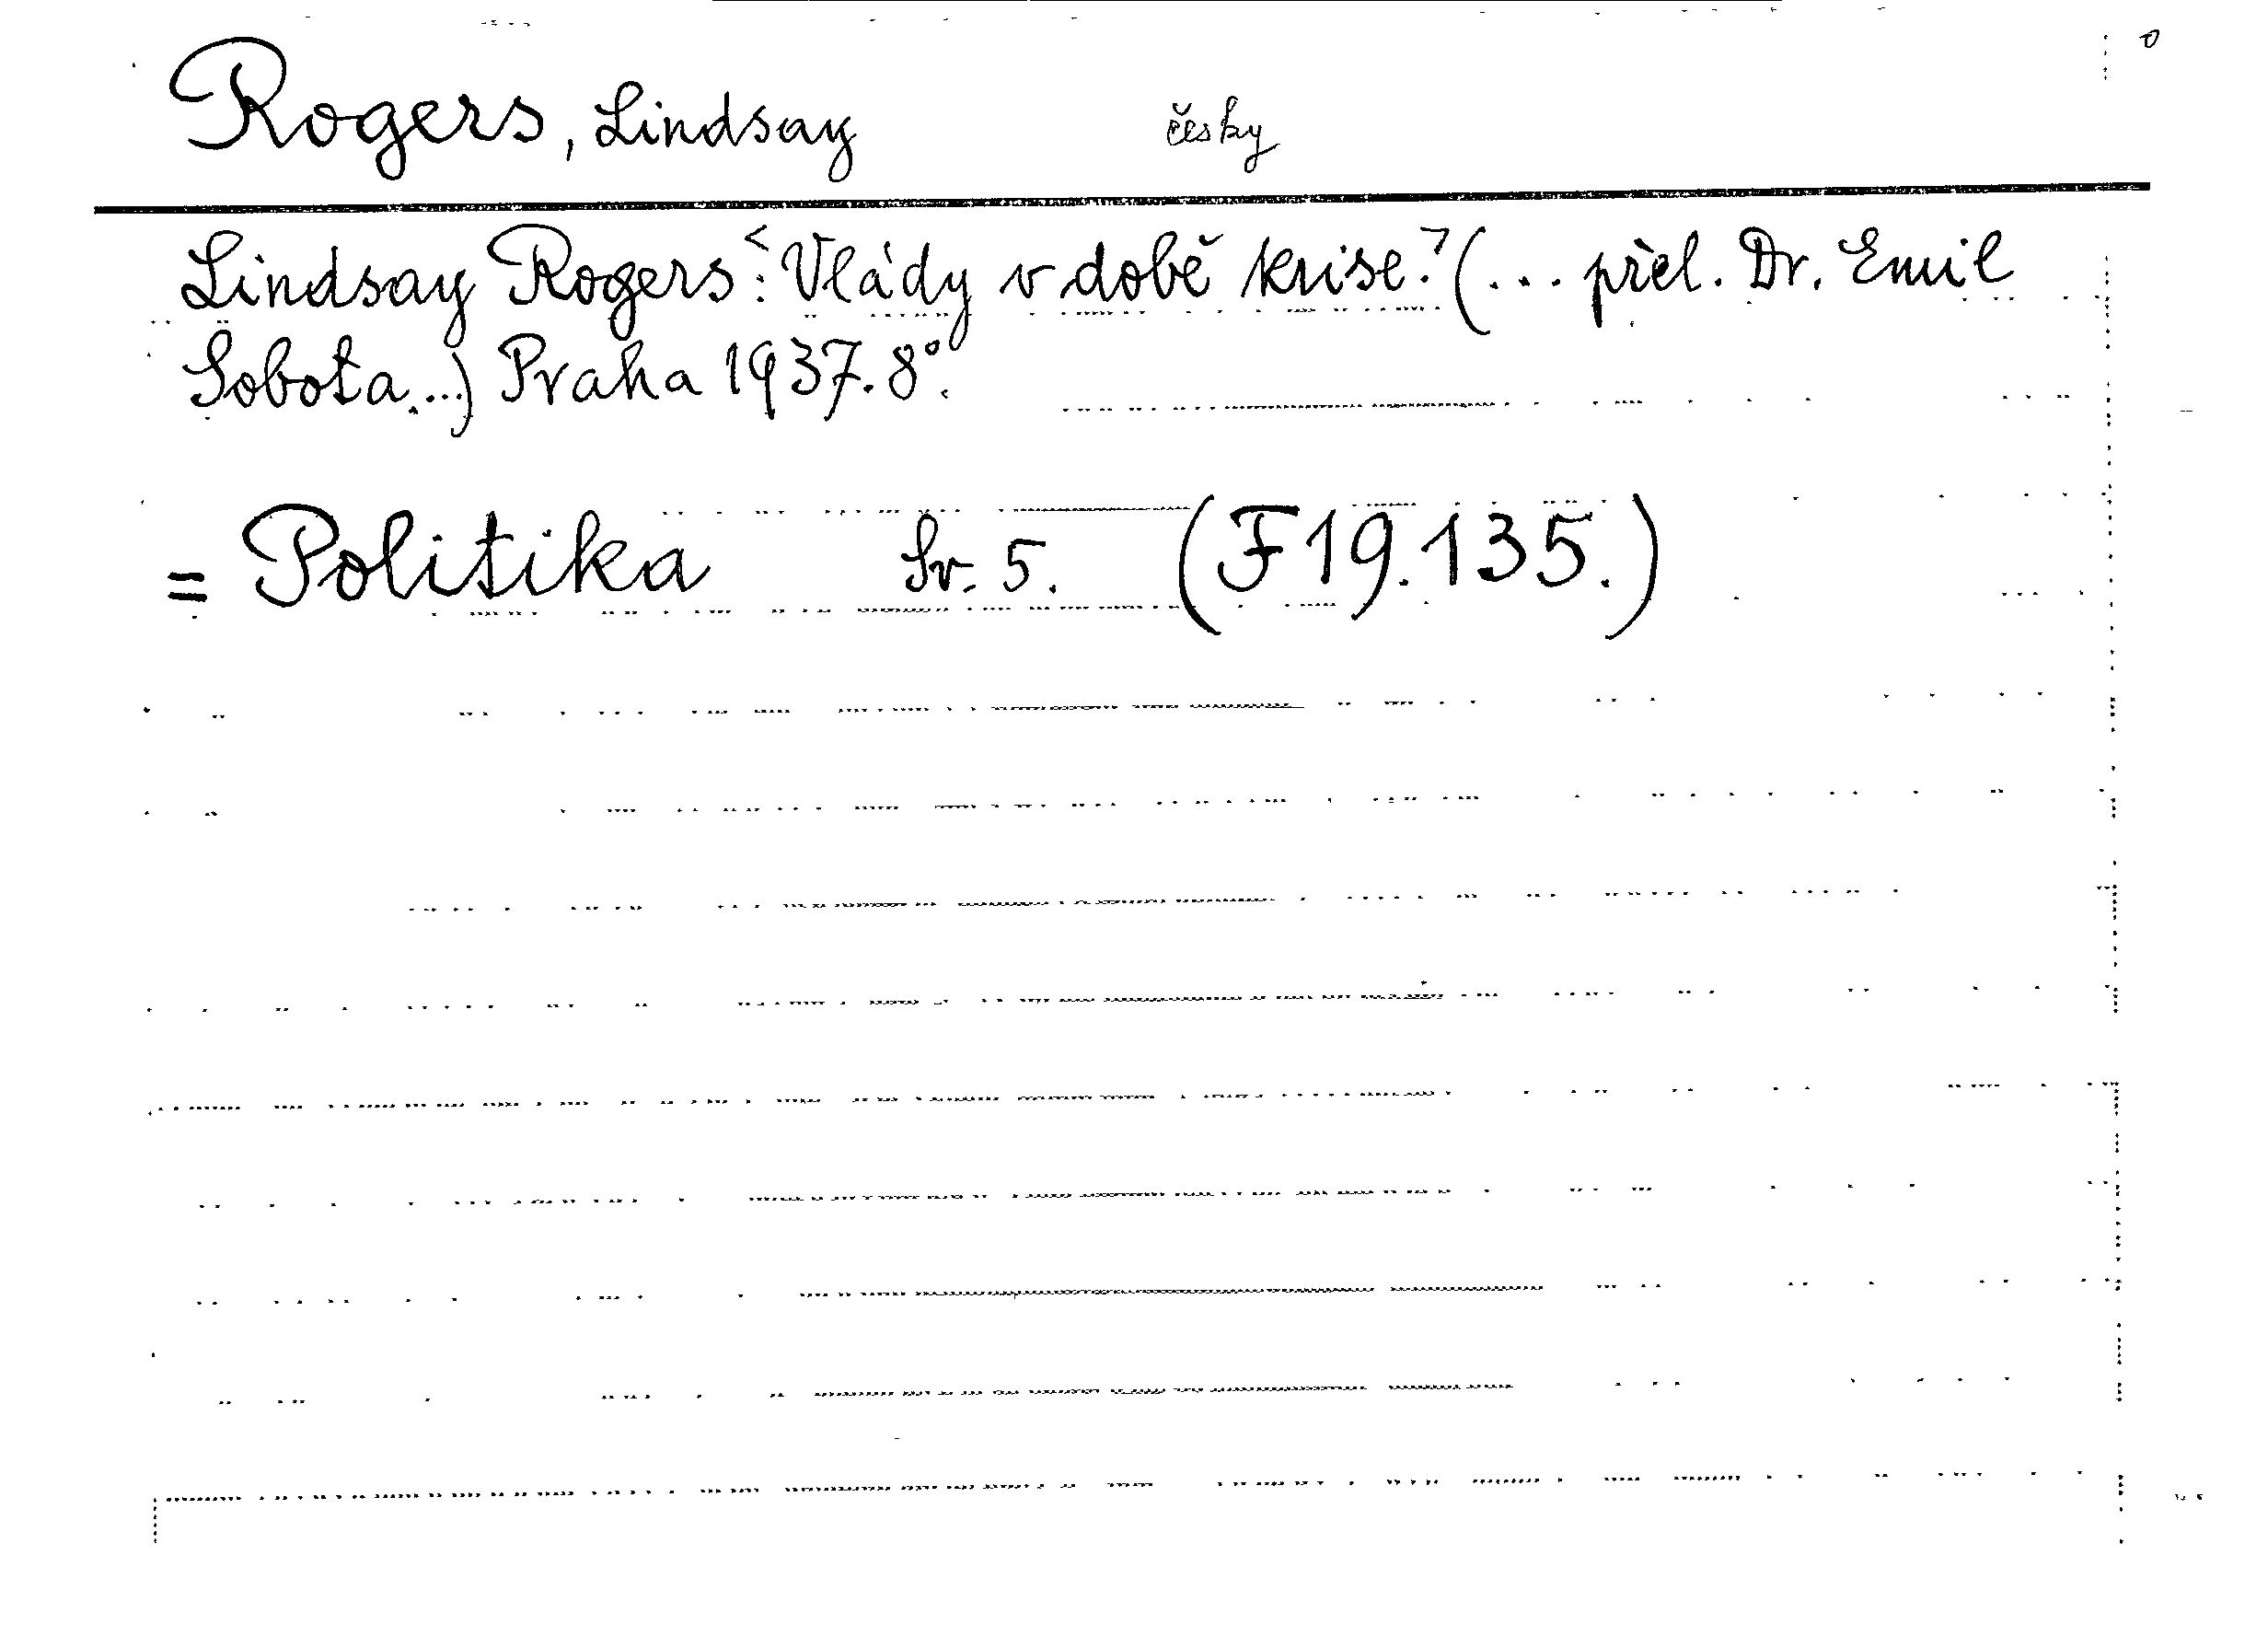 o
Rogers, Lindsay česky
Lindsay Rogers: <Vlády v době krise.> (... přel. Dr. Emil
Sobota...) Praha 1937. 8°.
= Politika Sv. 5. (F19.135.)